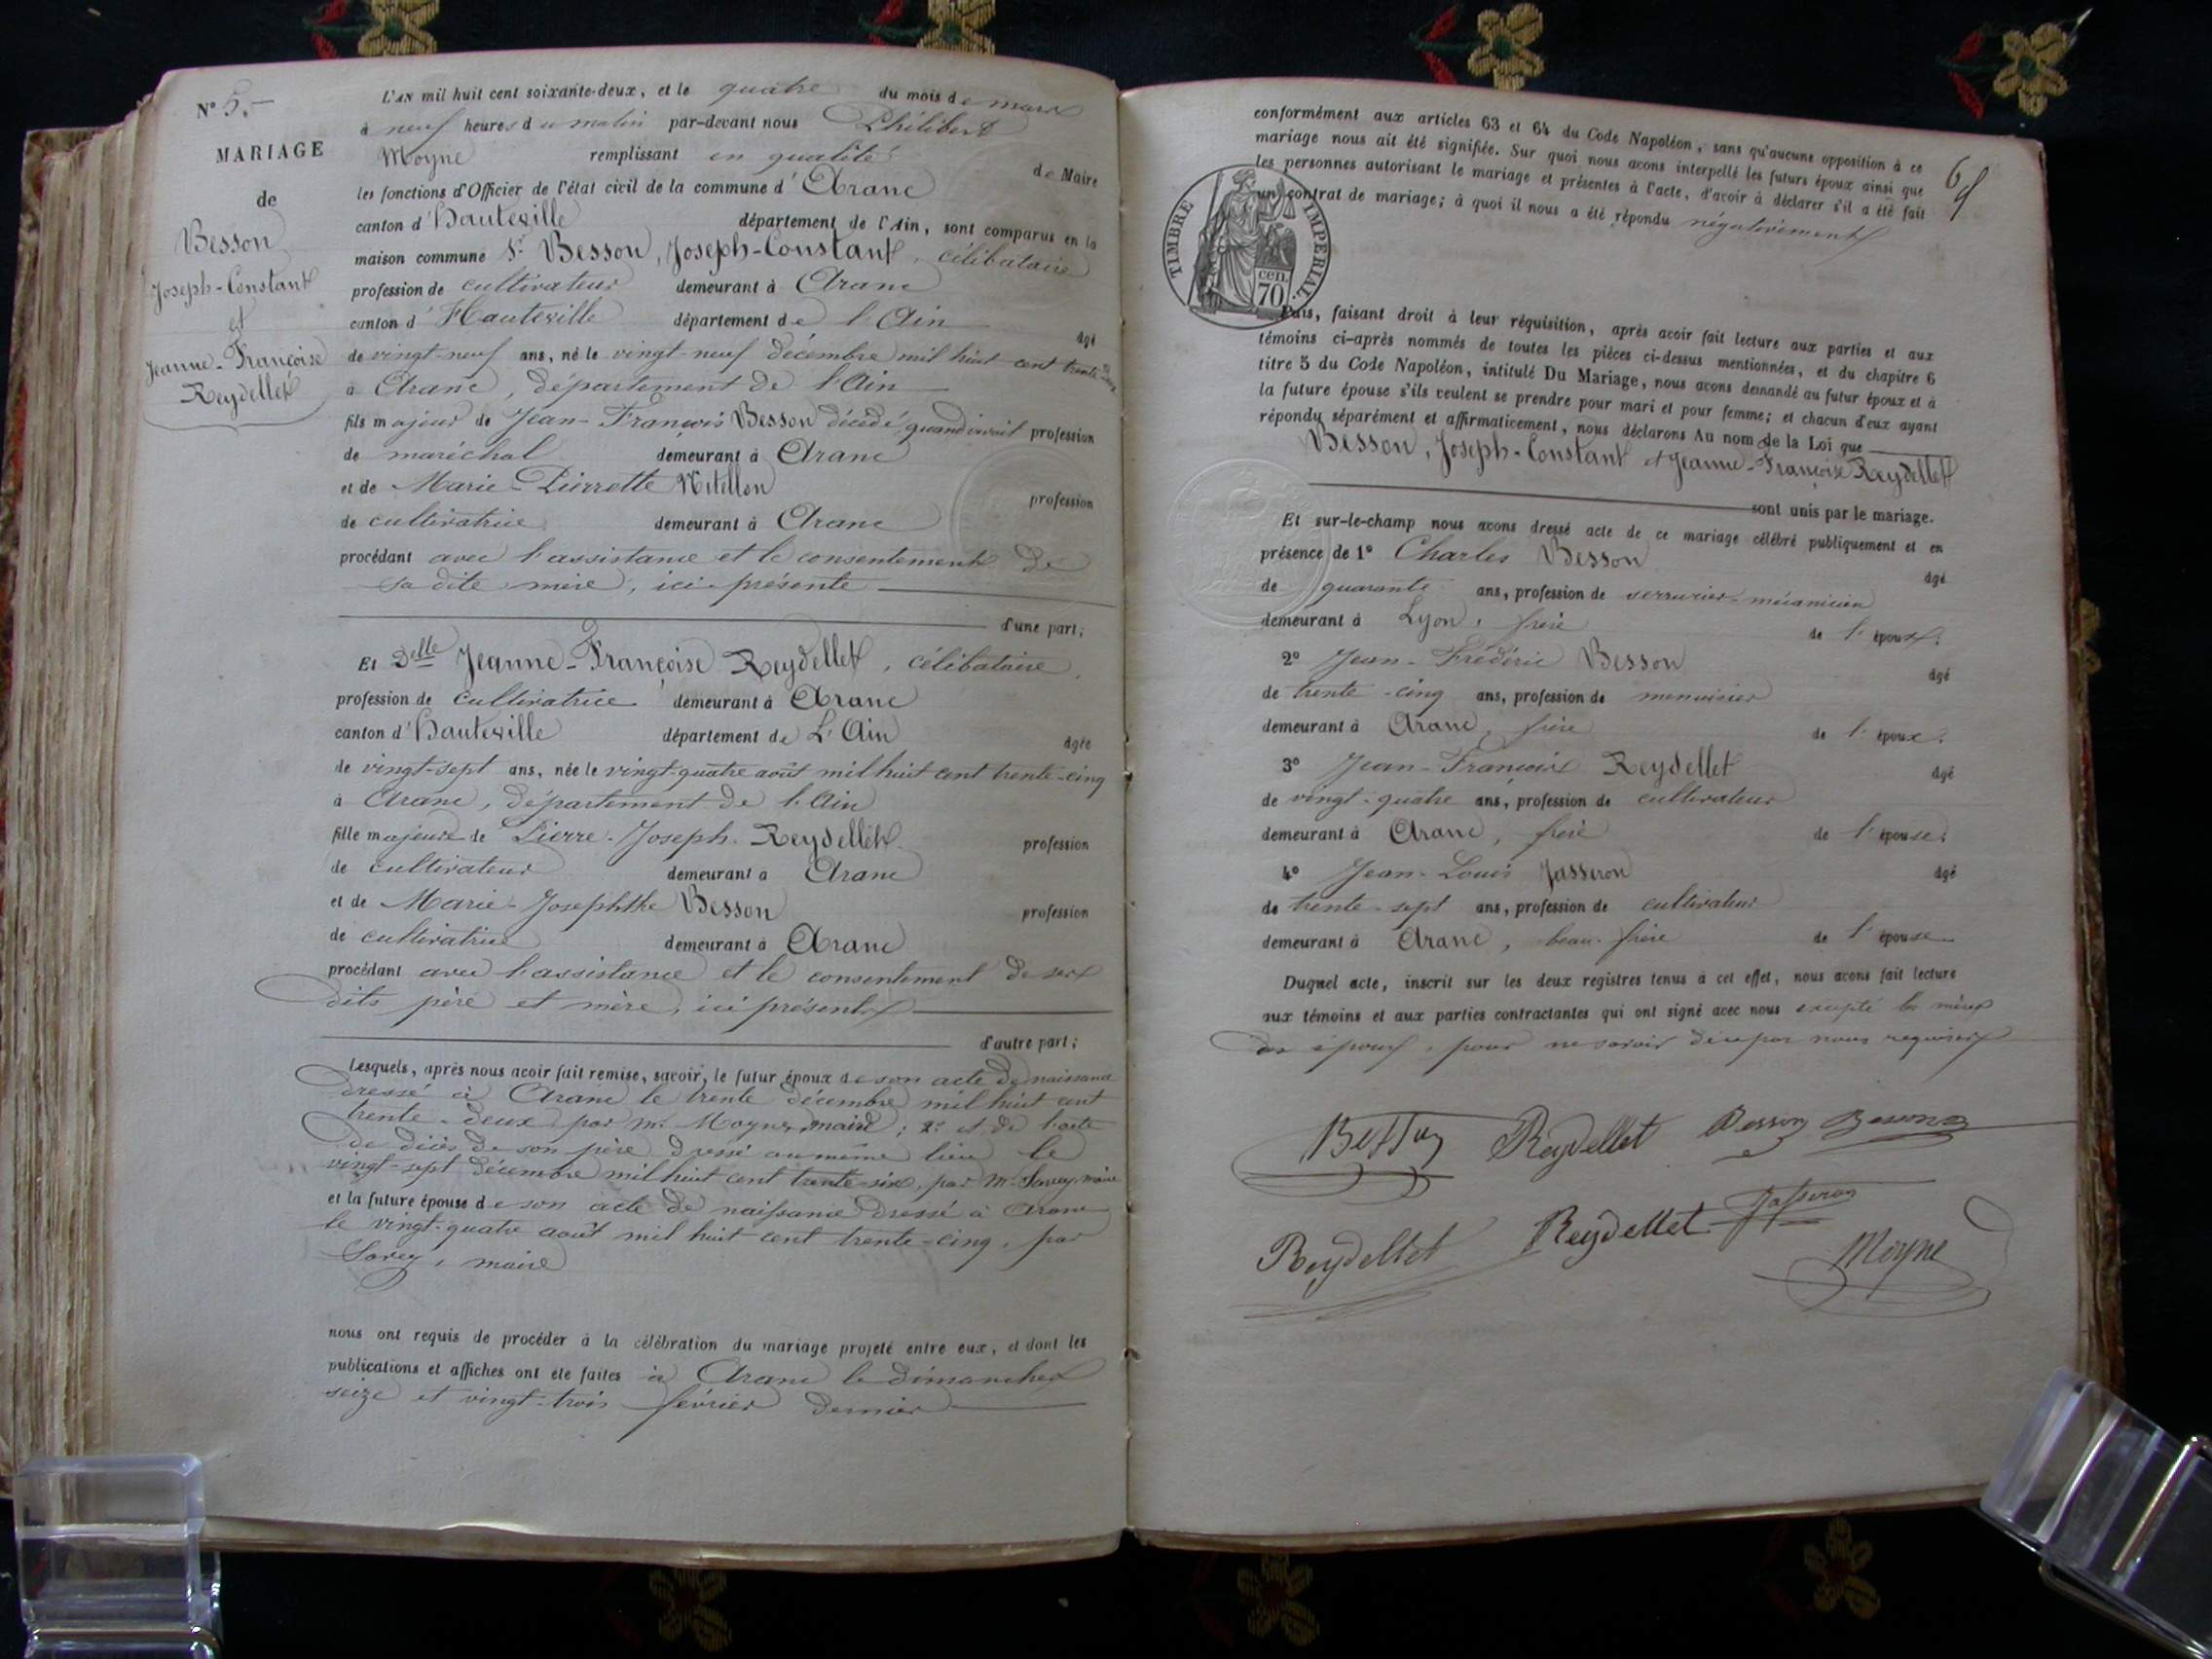 N° 5.
MARIAGE
de
Besson
Joseph-Constant
et
Jeanne-Françoise
Reydellet
L'AN mil huit cent soixante-deux, et le quatre du mois de mars
à neuf heures du matin par-devant nous Philibert
Moyne remplissant en qualité de Maire
les fonctions d'Officier de l'état civil de la commune d'Aranc
canton d'Hauteville département de l'Ain, sont comparus en la
maison commune Sr Besson, Joseph-Constant, célibataire
profession de cultivateur demeurant à Aranc
canton d'Hauteville département de l'Ain âgé
de vingt-neuf ans, né le vingt-neuf décembre mil huit cent trente-deux
à Aranc, département de l'Ain
fils majeur de Jean-François Besson décédé, quand vivait profession
de maréchal demeurant à Aranc
et de Marie-Pierrette profession
de cultivatrice demeurant à Aranc
procédant avec l'assistance et le consentement de
sa dite mère, ici présente
d'une part;
Et Delle Jeanne-Françoise Reydellet, célibataire,
profession de cultivatrice demeurant à Aranc
canton d'Hauteville département de L'Ain âgée
de vingt-sept ans, née le vingt-quatre août mil huit cent trente-cinq
à Aranc, département de l'Ain
fille majeure de Pierre-Joseph Reydellet profession
de cultivateur demeurant à Aranc
et de Marie-Josephthe Besson profession
de cultivatrice demeurant à Aranc
procédant avec l'assistance et le consentement de ses
dits père et mère, ici présents
d'autre part;
Lesquels, après nous avoir fait remise, savoir, le futur époux de son acte de naissance
dressé à Aranc le trente décembre mil huit cent
trente-deux par Mr Moyne, maire; 2° et de l'acte
de décès de son père dressé au même lieu le
vingt-sept décembre mil huit cent trente-six, par Mr Savey, maire
et la future épouse de son acte de naissance dressé à Aranc
le vingt-quatre août mil huit cent trente-cinq, par
Savey, maire
nous ont requis de procéder à la célébration du mariage projeté entre eux, et dont les
publications et affiches ont été faites à Aranc le dimanches
seize et vingt-trois février dernier
conformément aux articles 63 et 64 du Code Napoléon, sans qu'aucune opposition à ce
mariage nous ait été signifiée. Sur quoi nous avons interpellé les futurs époux ainsi que
les personnes autorisant le mariage et présentes à l'acte, d'avoir à déclarer s'il a été fait
un contrat de mariage; à quoi il nous a été répondu négativement
TIMBRE IMPERIAL.
70 cen.
Puis, faisant droit à leur réquisition, après avoir fait lecture aux parties et aux
témoins ci-après nommés de toutes les pièces ci-dessus mentionnées, et du chapitre 6
titre 5 du Code Napoléon, intitulé Du Mariage, nous avons demandé au futur époux et à
la future épouse s'ils veulent se prendre pour mari et pour femme; et chacun d'eux ayant
répondu séparément et affirmativement, nous déclarons Au nom de la Loi que
Besson, Joseph-Constant et Jeanne-Françoise Reydellet
sont unis par le mariage.
Et sur-le-champ nous avons dressé acte de ce mariage célébré publiquement et en
présence de 1° Charles Besson âgé
de quarante ans, profession de serrurier-mécanicien
demeurant à Lyon, frère de l'époux.
2° Jean-Frédéric Besson âgé
de trente-cinq ans, profession de menuisier
demeurant à Aranc, frère de l'époux.
3° Jean-François Reydellet âgé
de vingt-quatre ans, profession de cultivateur
demeurant à Aranc, frère de l'épouse.
4° Jean-Louis Jasseron âgé
de trente-sept ans, profession de cultivateur
demeurant à Aranc, beau-frère de l'épouse
Duquel acte, inscrit sur les deux registres tenus à cet effet, nous avons fait lecture
aux témoins et aux parties contractantes qui ont signé avec nous excepté les mères
des époux, pour ne savoir de ce par nous requises
Besson Reydellet Besson Besson
Reydellet Reydellet Jasseron
Moyne